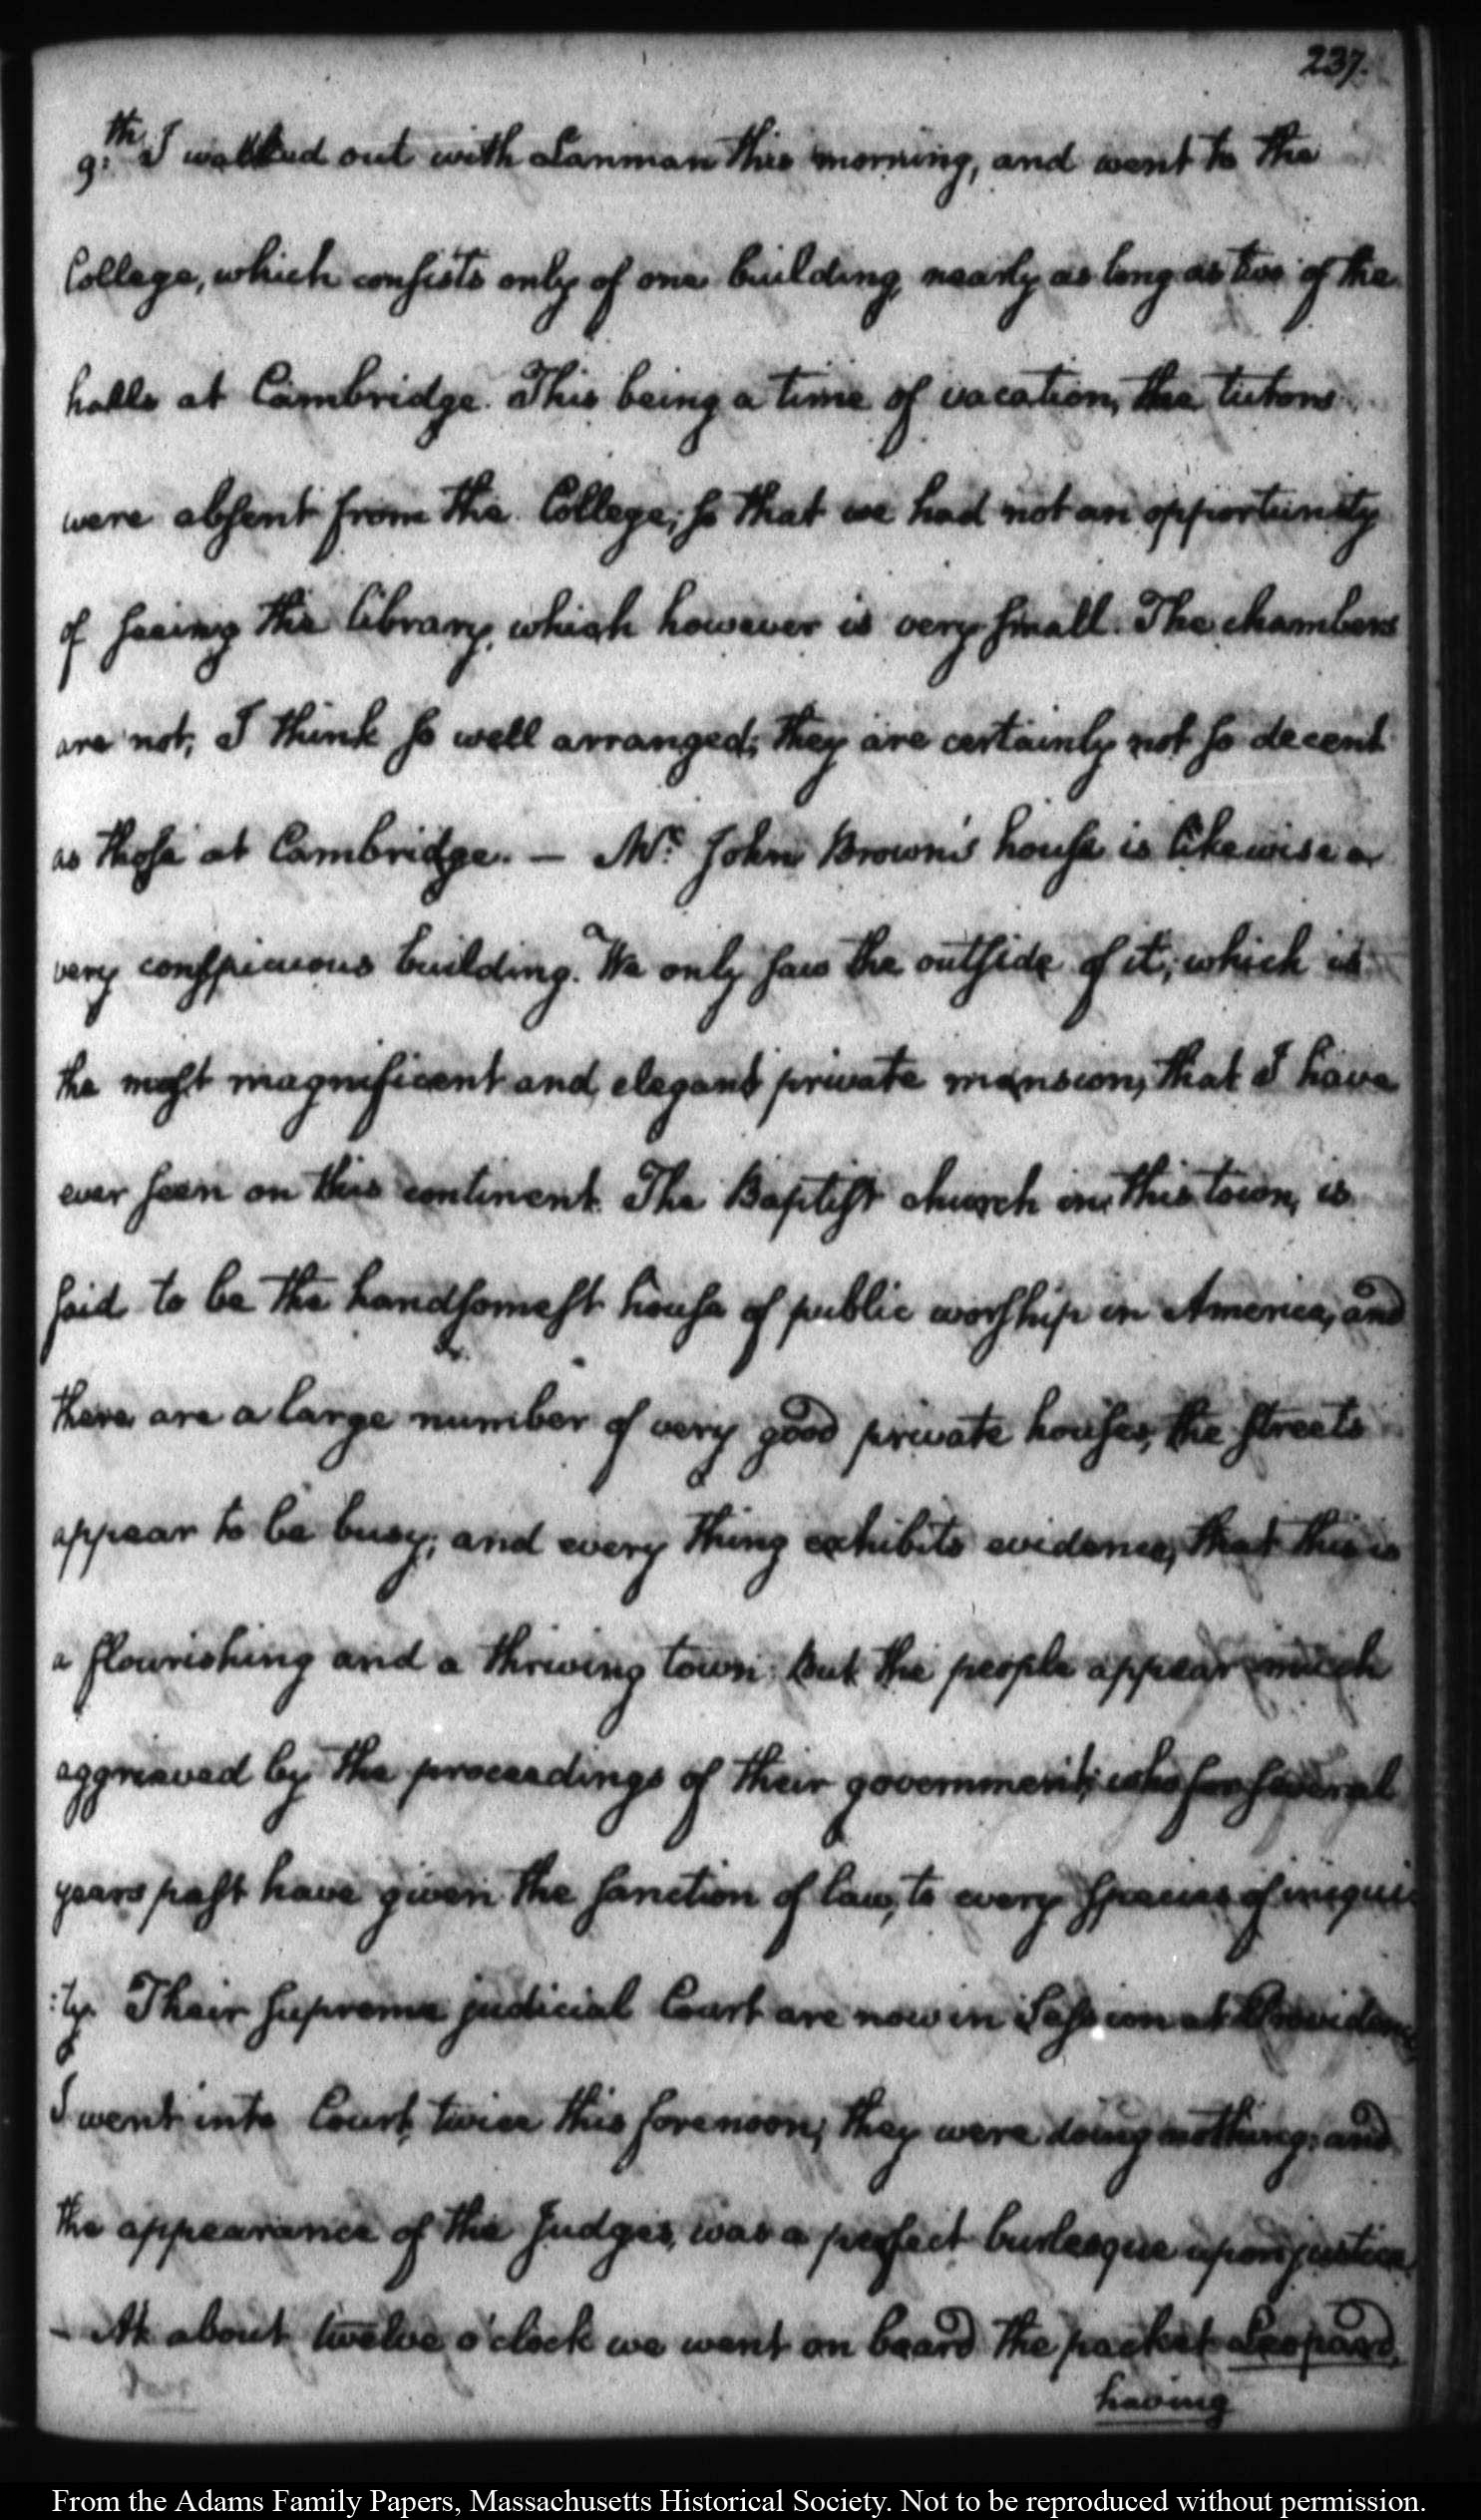 237.
9.th I walked out with Lanman this morning, and went to the
College, which consists only of one building, nearly as long as two of the
halls at Cambridge. This being a time of vacation, the tutors
were absent from the College; so that we had not an opportunity
of seeing the library, which however is very small. The chambers
are not, I think so well arranged; they are certainly not so decent
as those at Cambridge. — Mr. John Brown's house is likewise a
very conspicuous building. We only saw the outside of it; which is
the most magnificent and elegant private mansion, that I have
ever seen on this continent. The Baptist church in this town, is
said to be the handsomest house of public worship in America, and
there are a large number of very good private houses, the streets
appear to be busy; and every thing exhibits evidence, that this is
a flourishing and a thriving town. But the people appear much
aggrieved by the proceedings of their government; who for several
years past have given the sanction of law, to every species of iniqui
:ty. Their supreme judicial Court are now in Session at Providence
I went into Court, twice this forenoon; they were doing nothing; and
the appearance of the Judges, was a perfect burlesque upon justice
- At about twelve o'clock we went on board the packet Leopard,
having
From the Adams Family Papers, Massachusetts Historical Society. Not to be reproduced without permission.